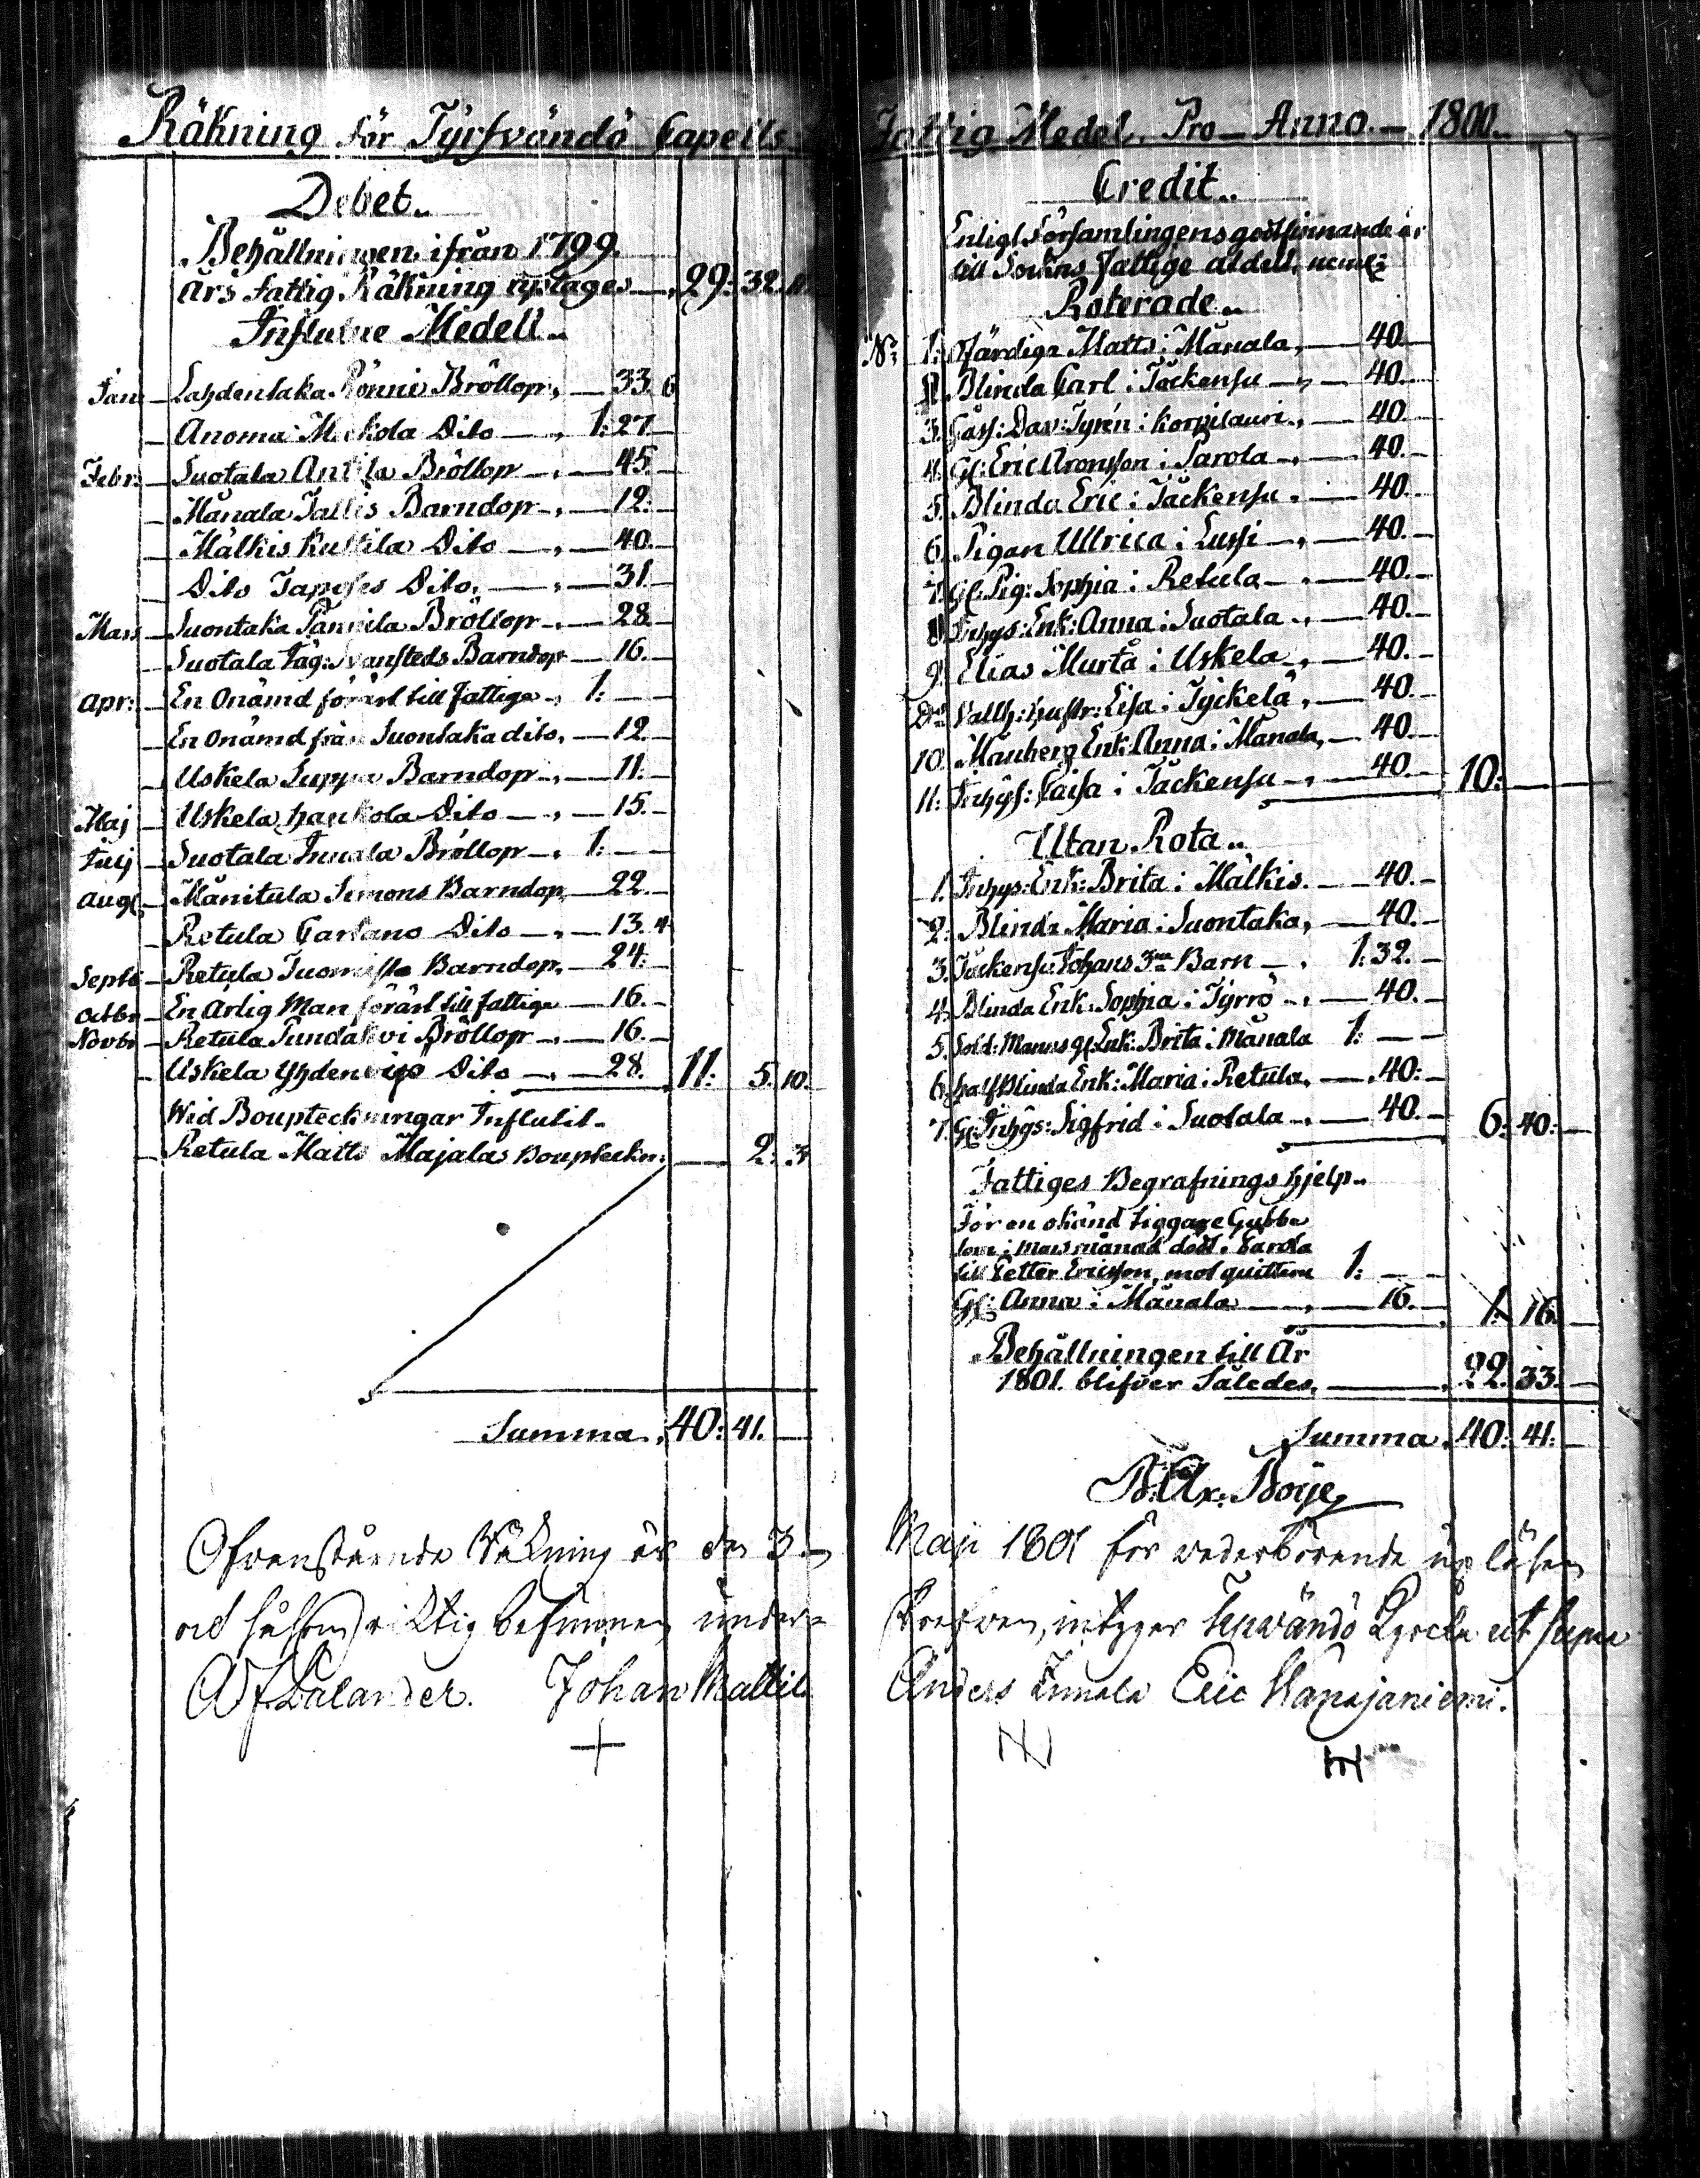 Räkning för Tyrfvändö Capells Fattig Medel. Pro Anno. 1800.
Debet.
Behållningen ifrån 1799.
Års Fattig Räkning uptages 29: 32. 11.
Influtne Medell.
Jan: Lahdentaka Rönni Bröllop, 33. 6
Anoma Mickola Dito 1: 27
Febr: Suotala Antila Bröllop 45.
Månala Jallis Barndop 12:
Mälkis Kustila Dito 40.
Dito Dito, 31.
Mars Suontaka Pannila Bröllop 28.
Suotala Barndop 16.
Apr: En Onämd förärt till Fattiga 1:
En Onämd från Suontaka dito, 12
Uskela Juppa Barndop 11:
Maj Uskela Hankola Dito 15.
Julj Suotala Innala Bröllop 1:
Aug: Månitula Simons Barndop 22.
Retula Dito 13. 4
Septb Retula Barndop, 24:
Octbr En Ärlig Man förärt till fattiga 16.
Novbr Retula Bröllop 16.
Uskela Dito 28. 11: 5. 10.
Wid Boupteckningar Influtit
Retula Matts Majalas Boupteckn: 2: 3
Summa. 40: 41.
Ofvanstående Räkning är den 3
och såsom riktig befunnen under=
Johan Mattil
Credit.
Enligt Församlingens godtfinnande är
till Sockns Fattige utdelt, neml:
Roterade.
No: 1: Matts i Månala, 40.
2. Blinda Carl i Täckensu 40.
3. Dav: Tyrén i Korpilauri 40.
4. Gl: Eric Aronsson i Parola 40.
5. Blinda Eric i Täckensu 40.
6. Pigan Ullrica i Lussi 40.
7. Gl: Pig: Sophia i Retula 40.
8. Inhys: Enk: Anna i Suotala 40.
9. Elias Murta i Uskela 40.
Do Vallh: Hustr: Lisa i Tyckelä, 40.
10. Enk: Anna i Månala, 40.
11: Inhys: Caisa i Täckensu 40. 10:
Utan Rota.
1. Inhys: Enk: Brita i Mälkis. 40.
2: Blinda Maria i Suontaka, 40.
3. Täckensu Johans 3ne Barn 1: 32.
4. Blinda Enk: Sophia i Tyrrö 40.
5. Sold: Manns gl: Enk: Brita i Månala 1:
6. Half Blinda Enk: Maria i Retula, 40:
7. Gl: Inhys: Sigfrid i Suotala 40. 6: 40:
Fattiges Begrafnings hjelp.
För en okänd Tiggare Gubbe
som i Mars månad dödt i Parola
till Petter Ericsson, mot quittence 1:
Gl: Anna i Månala 16. 1: 16.
Behållningen till År
1801. blifver Således, 22. 33.
Summa. 40: 41:
B: Ax: Börje
Maji 1801 för wederbörande up läsen
ut supra
Anders Innala Eric Hanajaniemi.